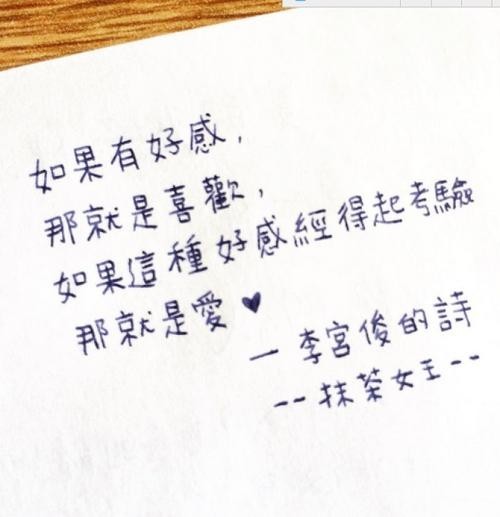 如果有好感,
那就是喜歡,
如果這種好感經得起考驗
那就是愛♥
一李宮俊的詩
--抹茶女王--